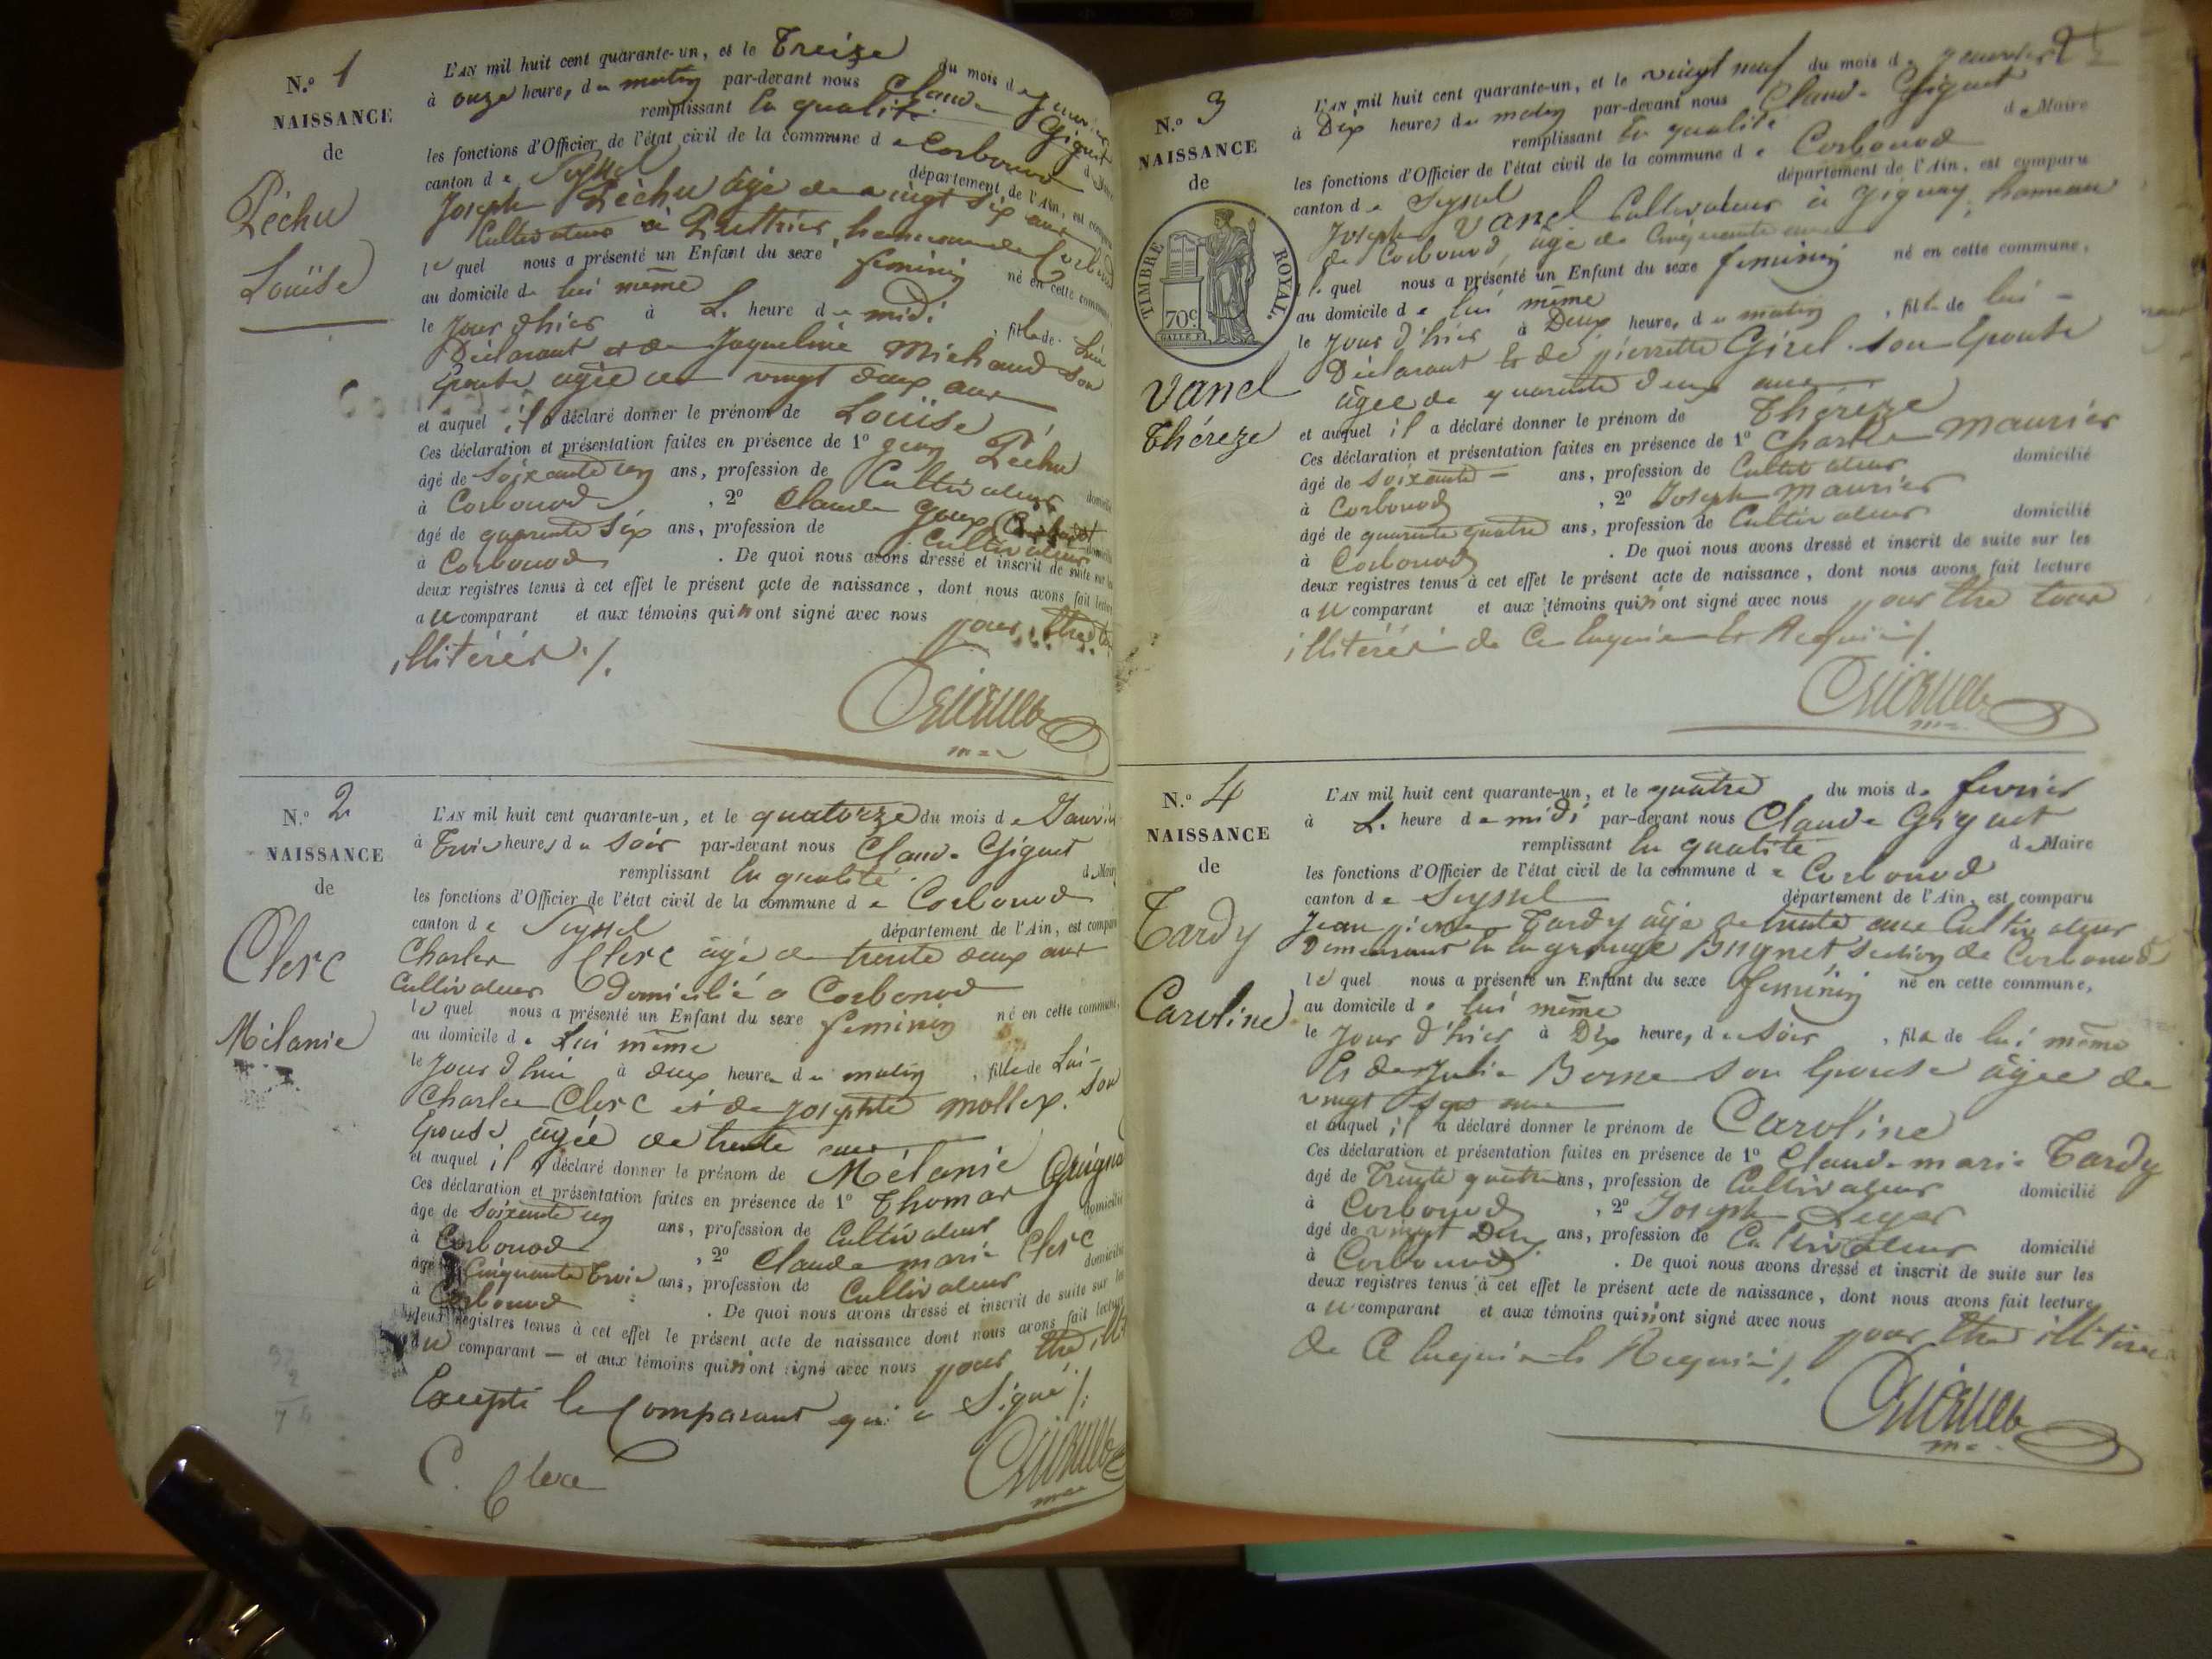 N.º 1
NAISSANCE
de
Péchu
Louïse
L'AN mil huit cent quarante-un, et le Treize du mois de Janvier
à onze heures du matin par-devant nous Claude Giguet
remplissant la qualité
les fonctions d'Officier de l'état civil de la commune de Corbonod
canton de Seyssel département de l'Ain, est comparu
Joseph Péchu âgé de vingt six ans
Cultivateur à hameau de Corbonod
lequel nous a présenté un Enfant du sexe féminin né en cette commune,
au domicile de lui même
le Jour d'hier à L. heure de midi, fille de Lui
Déclarant et de Jaqueline Michaud son
Epouse âgée de vingt deux ans
et auquel il a déclaré donner le prénom de Louïse
Ces déclaration et présentation faites en présence de 1º Péchu
âgé de Soixante un ans, profession de Cultivateur domicilié
à Corbonod, 2º Claude
âgé de quarante Six ans, profession de Cultivateur domicilié
à Corbonod. De quoi nous avons dressé et inscrit de suite sur les
deux registres tenus à cet effet le présent acte de naissance, dont nous avons fait lecture
au comparant et aux témoins qui n'ont signé avec nous pour être
illitérés ./.
Giguet
N.º 2
NAISSANCE
de
Clerc
Mélanie
L'AN mil huit cent quarante-un, et le quatorze du mois de Janvier
à Trois heures du Soir par-devant nous Claude Giguet
remplissant la qualité de Maire
les fonctions d'Officier de l'état civil de la commune de Corbonod
canton de Seyssel département de l'Ain, est comparu
Charles Clerc âgé de trente deux ans
Cultivateur Domicilié à Corbonod
lequel nous a présenté un Enfant du sexe féminin né en cette commune,
au domicile de Lui même
le Jour d'hui à deux heures du matin, fille de Lui-
Charles Clerc et de Josephte Mollex. son
Epouse âgée de trente ans
et auquel il a déclaré donner le prénom de Mélanie
Ces déclaration et présentation faites en présence de 1º Thomas
âgé de Soixante un ans, profession de Cultivateur domicilié
à Corbonod, 2º Claude marie Clerc
âgé de Cinquante Trois ans, profession de Cultivateur domicilié
à Corbonod. De quoi nous avons dressé et inscrit de suite sur les
deux registres tenus à cet effet le présent acte de naissance dont nous avons fait lecture
au comparant — et aux témoins qui n'ont signé avec nous pour être
Excepté le Comparant qui a Signé ./.
C. Clerc
Giguet
N.º 3
NAISSANCE
de
TIMBRE ROYAL.
70c
Vanel
Théreze
L'AN mil huit cent quarante-un, et le vingt neuf du mois de Janvier
à Dix heures du matin par-devant nous Claude Giguet
remplissant la qualité de Maire
les fonctions d'Officier de l'état civil de la commune de Corbonod
canton de Seyssel département de l'Ain, est comparu
Joseph Vanel Cultivateur à Gignay, hameau
de Corbonod âgé de Cinquante ans
lequel nous a présenté un Enfant du sexe féminin né en cette commune,
au domicile de lui même
le Jour d'hier à Deux heures du matin, fille de lui -
Déclarant et de pierrette Girel son Epouse
âgée de quarante deux ans
et auquel il a déclaré donner le prénom de Théreze
Ces déclaration et présentation faites en présence de 1º Charle Maurier
âgé de Soixante - ans, profession de Cultivateur domicilié
à Corbonod, 2º Joseph Maurier
âgé de quarante quatre ans, profession de Cultivateur domicilié
à Corbonod. De quoi nous avons dressé et inscrit de suite sur les
deux registres tenus à cet effet le présent acte de naissance, dont nous avons fait lecture
au comparant et aux témoins qui n'ont signé avec nous pour être tous
illitérés de Ce Enquis et Requis ./.
Giguet
N.º 4
NAISSANCE
de
Tardy
Caroline
L'AN mil huit cent quarante-un, et le quatre du mois de février
à L. heure de midi par-devant nous Claude Giguet
remplissant la qualité de Maire
les fonctions d'Officier de l'état civil de la commune de Corbonod
canton de Seyssel département de l'Ain, est comparu
Jean pierre Tardy âgé de trente ans Cultivateur
Demeurant à la grange Bugnet Section de Corbonod
lequel nous a présenté un Enfant du sexe féminin né en cette commune,
au domicile de lui même
le Jour d'hier à Dix heures du Soir, fille de lui même
Et de Julie Borne son Epouse âgée de
vingt Sept ans
et auquel il a déclaré donner le prénom de Caroline
Ces déclaration et présentation faites en présence de 1º Claude marie Tardy
âgé de Trente quatre ans, profession de Cultivateur domicilié
à Corbonod, 2º Joseph Leger
âgé de vingt Deux ans, profession de Cultivateur domicilié
à Corbonod. De quoi nous avons dressé et inscrit de suite sur les
deux registres tenus à cet effet le présent acte de naissance, dont nous avons fait lecture
au comparant et aux témoins qui n'ont signé avec nous pour être illitérés
de Ce Enquis et Requis ./.
Giguet